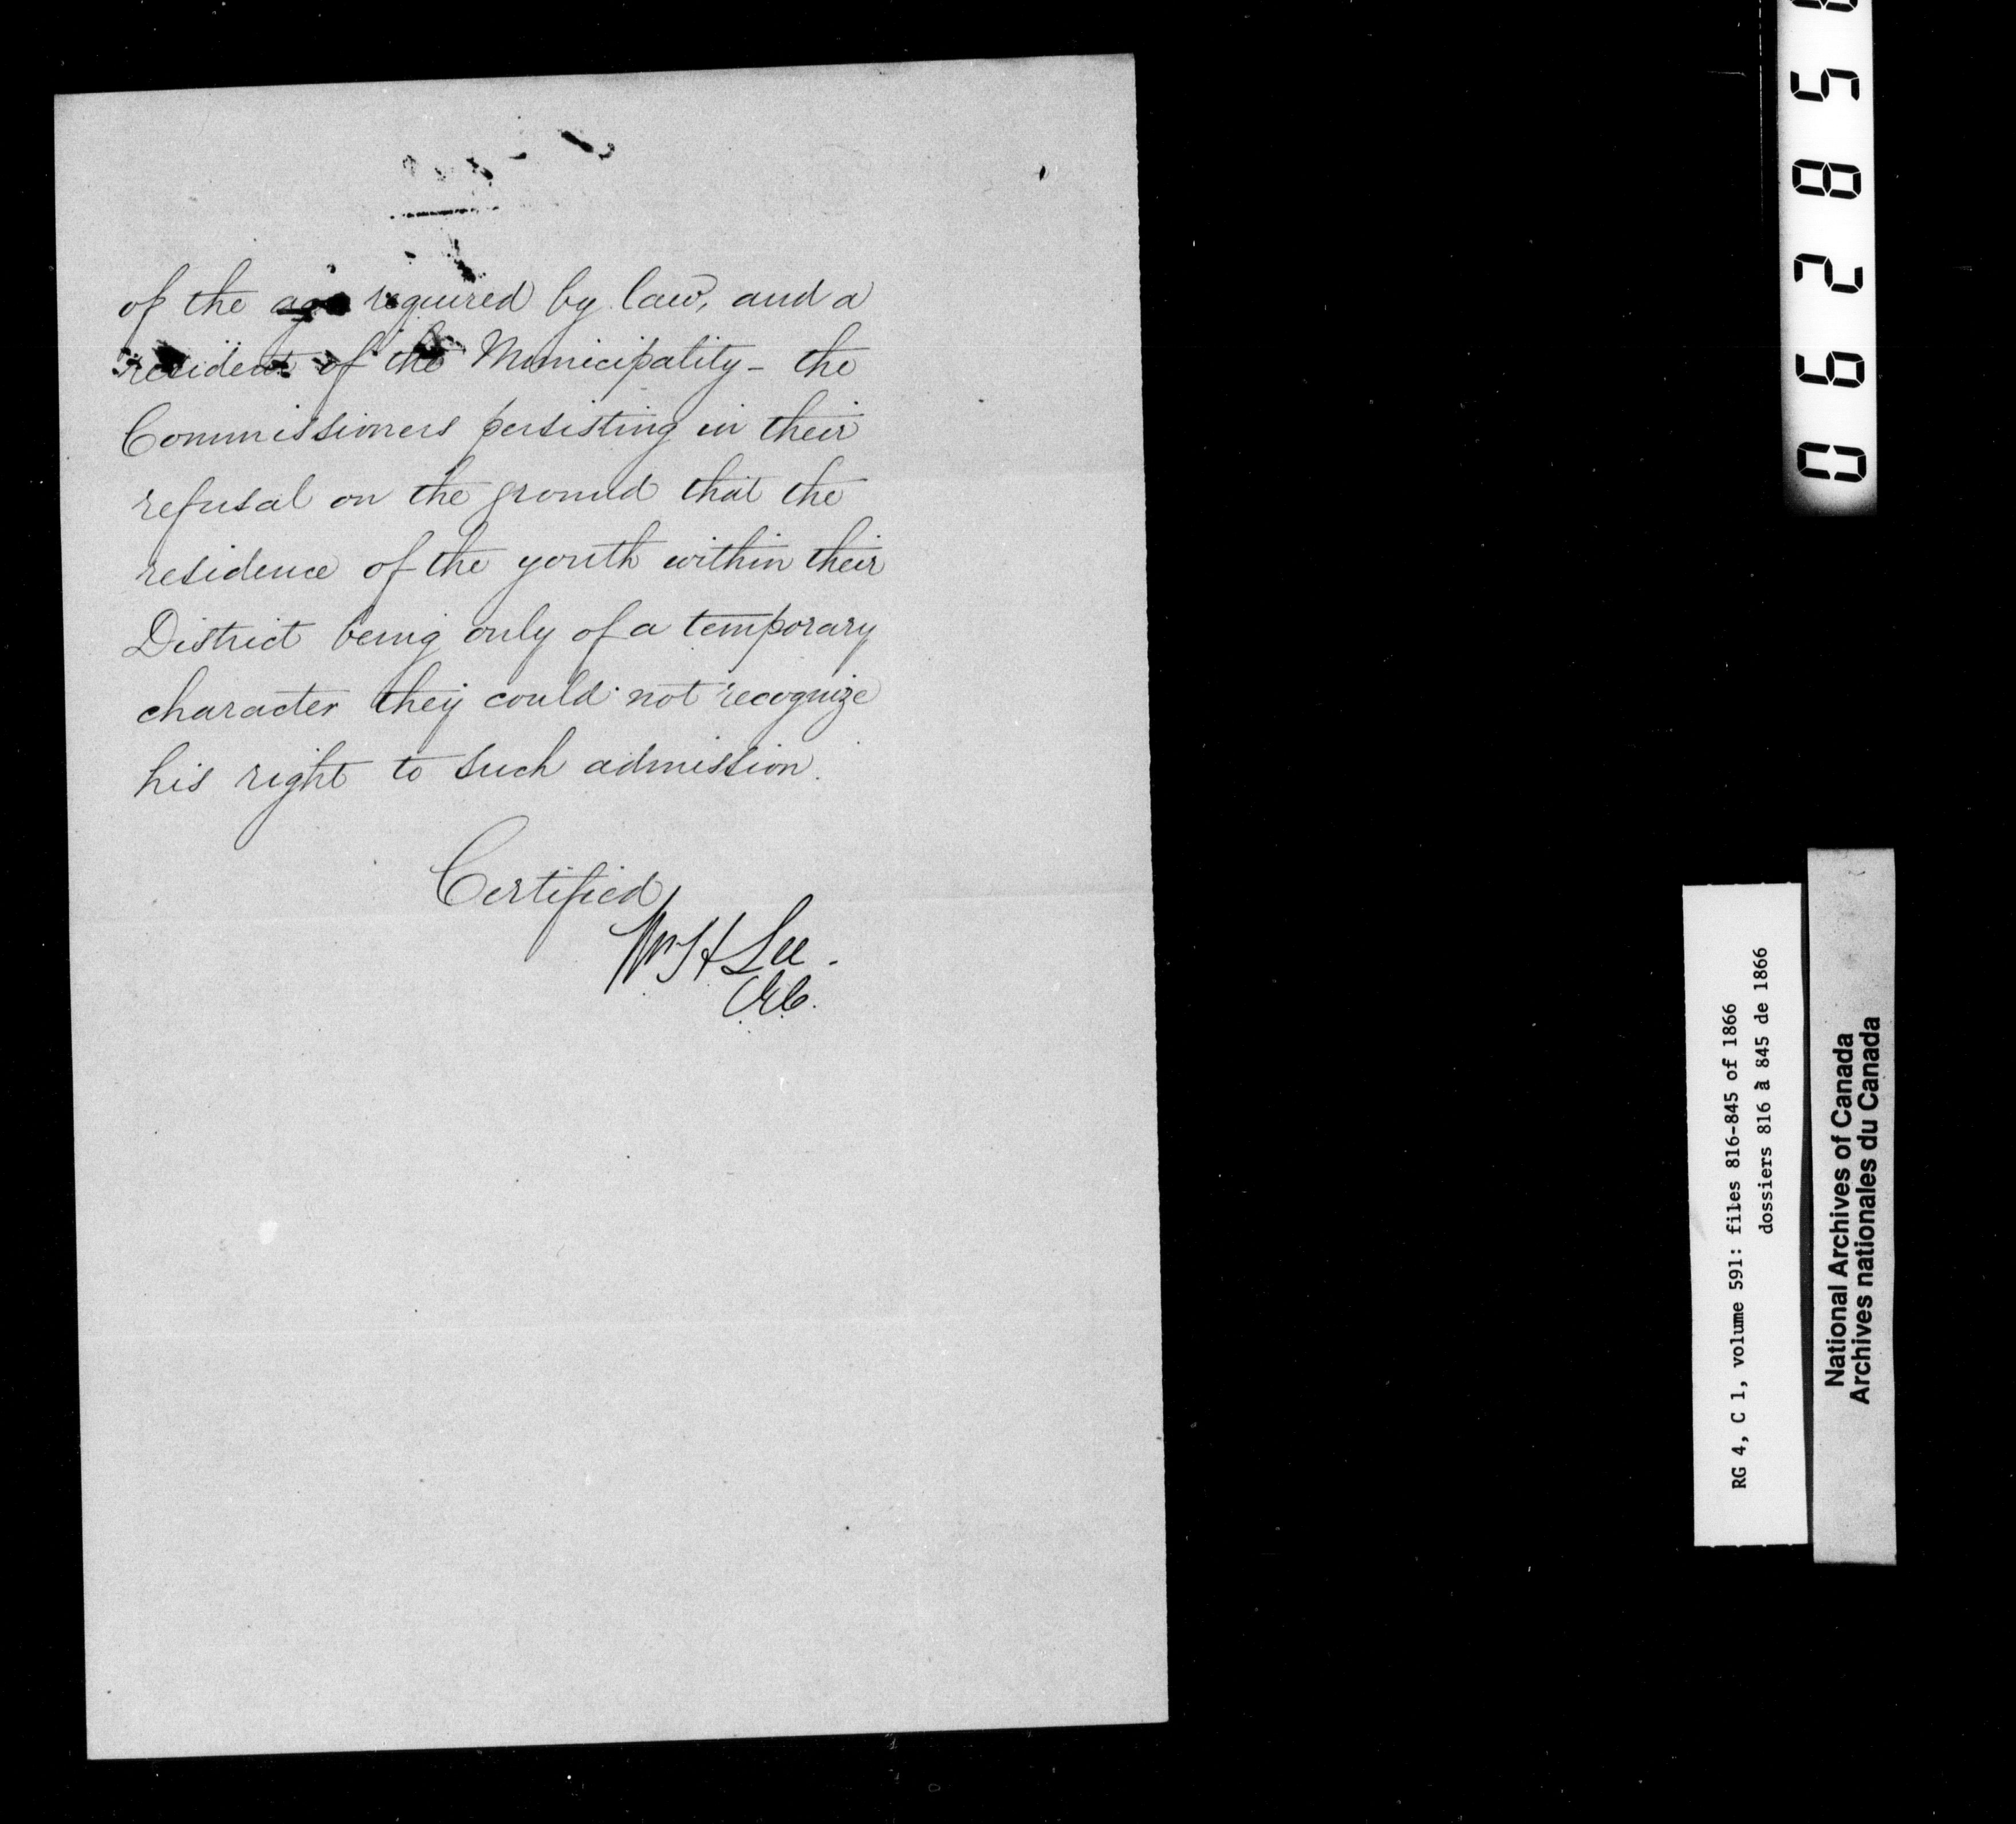 of the age required by law, and a
resident of the Municipality - the
Commissioners persisting in their
refusal on the ground that the
residence of the youth within their
District being only of a temporary
character they could not recognize
his right to such admission.
Certified
Wm H Lee.
C.E.C.
06285
RG 4, C 1, volume 591: files 816-845 of 1866
dossiers 816 à 845 de 1866
National Archives of Canada
Archives nationales du Canada